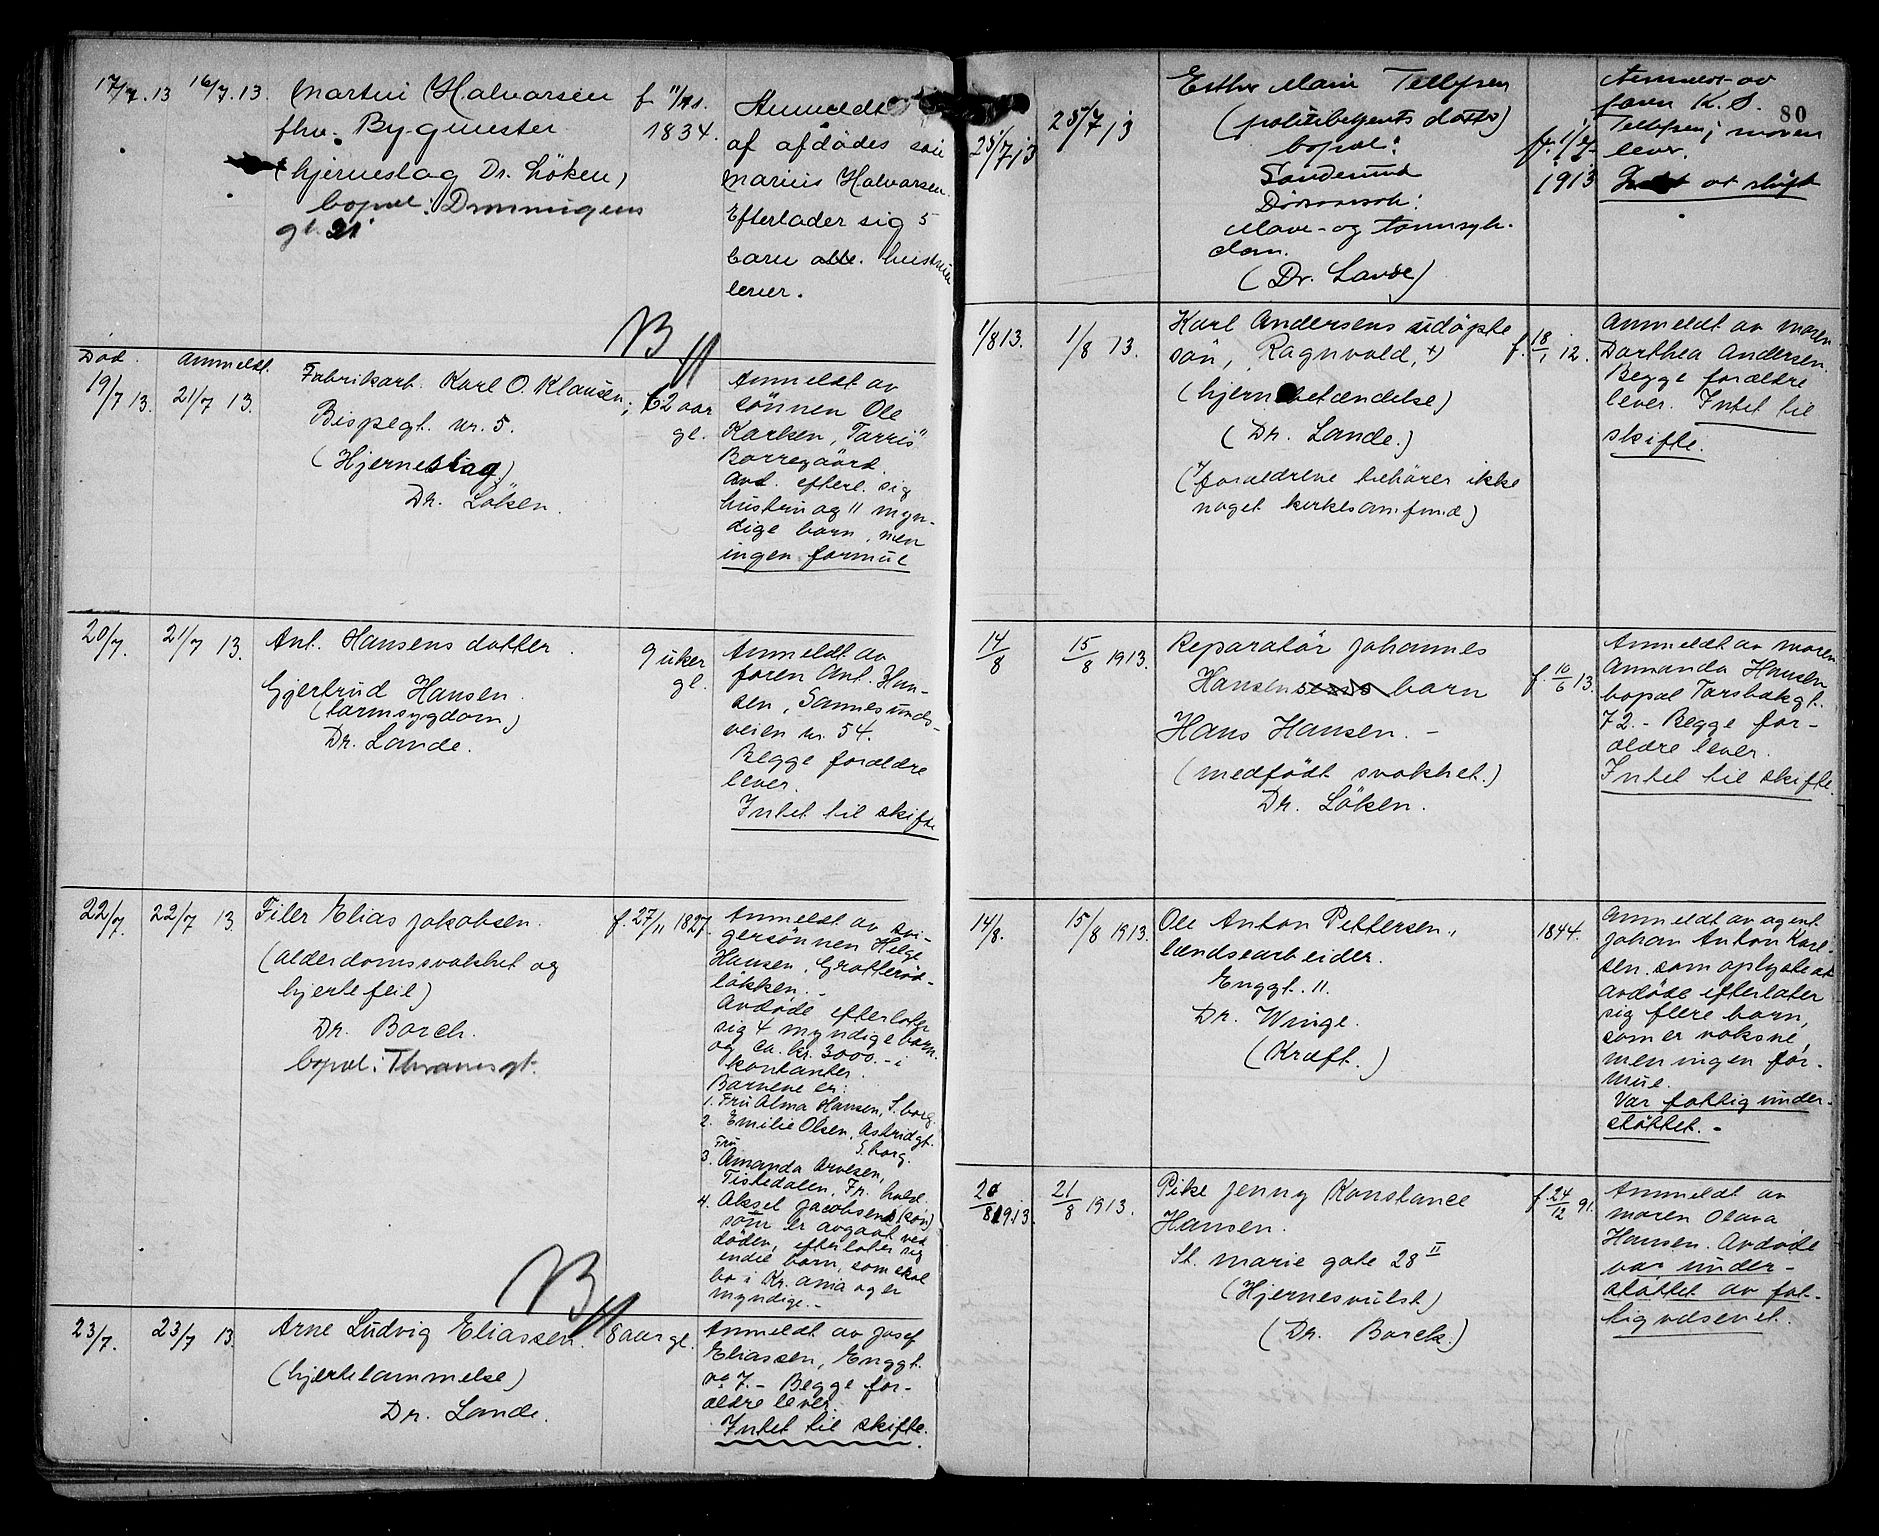 17/7.13 16/7.13. Martin Halvorsen f. 11/11.
fhv. Bygmester 1834.
(hjerneslag Dr. Löken)
bopæl: Dronningens
gt. 21
Anmeldt
af afdødes søn
Marius Halvorsen
Efterlader sig 5
barn alle. hustruen
lever.
B
Død. Anmeldt.
19/7 13. 21/7 13. Fabrikarb. Karl O. Klausen, 62 aar
Bispegt. nr. 5. gl.
(Hjerneslag)
Dr. Löken.
Anmeldt av
sönnen Ole
Karlsen, "Tarris"
Borregaard.
Avd. efterl. sig
hustru og 11 myn-
dige barn, men
ingen formue
20/7. 21/7 13. Ant. Hansens datter 9 uker
Gjertrud Hansen. gl.
(tarmsygdom)
Dr. Lande.
Anmeldt av
faren Ant. Han-
sen, Sannesunds-
veien nr. 54.
Begge forældre
lever.
Intet til skifte
22/7. 22/7 13. Filer Elias Jakobsen. f. 27/11 1827.
(alderdomssvakhet og
hjertefeil)
Dr. Borch.
bopæl: Thranesgt.
Anmeldt av svi-
gersönnen Helge
Hansen, Grotterød-
løkken.
Avdöde efterlater
sig 4 myndige barn
og ca. kr. 3000.- i
kontanter.
Barnene er:
1. Fru Alma Hansen, S.borg.
2. Emilie Olsen, Astridgt.
Fru S.borg.
3. Amanda Arvesen,
Tistedalen, Fr.hald.
4. Aksel Jacobsen (sön)
som er avgaat ved
döden, efterlater sig
endel barn, som skal
bo i Kr.ania og er
myndige.-
B
23/7. 23/7 13. Arne Ludvig Eliassen. 8 aar gl.
(hjertelammelse)
Dr. Lande.
Anmeldt av Josef
Eliassen, Enggt.
no 7.- Begge for-
ældre lever.
Intet til skifte.
80
25/7 13 25/7 13 Esther Marie Tellefsen
(politibetjents datter) f. 1/2
bopæl: 1913
Sandesund
Dörsaarsak:
Mave- og tarmsyk-
dom.
(Dr. Lande)
Anmeldt av
faren K. S.
Tellefsen; moren
lever.
Intet at skifte
1/8 13. 1/8 13. Karl Andersens udöpte f. 18/1 12.
sön, Ragnvald, +)
(hjernebetændelse)
(Dr. Lande.)
(+ forældrene tilhörer ikke
noget kirkesamfund)
Anmeldt av moren
Dorthea Andersen.
Begge forældre
lever. Intet til
skifte.
14/8 15/8 1913. Reparatör Johannes
Hansens barn f. 10/6 13.
Hans Hansen. -
(medfödt svakhet.)
Dr. Löken.
Anmeldt av moren
Amanda Hansen
bopæl Torsbækgt.
72. - Begge for-
ældre lever.
Intet til skifte.
14/8. 15/8 1913. Ole Anton Pettersen, 1844.
lændsearbeider.
Enggt. 11.
Dr. Winge.
(Kræft.)
Anmeldt av agent
Johan Anton Karl-
sen. som oplyste at
avdöde efterlater
sig flere barn,
som er voksne,
men ingen for-
mue.
Var fattig under-
stöttet. -
20/8 1913. 21/8 1913. Pike Jenny Konstance f. 24/12 91.
Hansen.
St. Marie gate 28 II
(Hjernesvulst)
(Dr. Borch.)
Anmeldt av
moren Olava
Hansen. Avdöde
var under-
stöttet av fat-
tigvæsenet.